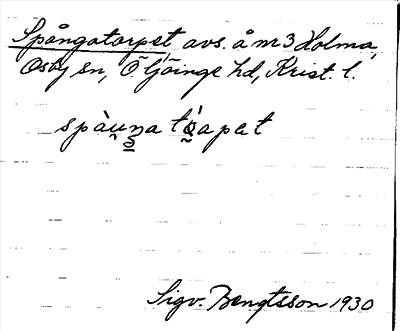 Spångatorpet avs. å m 3 Holma,
Osby sn, Ö. Göinge hd, Krist. l.
spàu̯n̲a tǫ́apet
Sigv. Bengtsson 1930